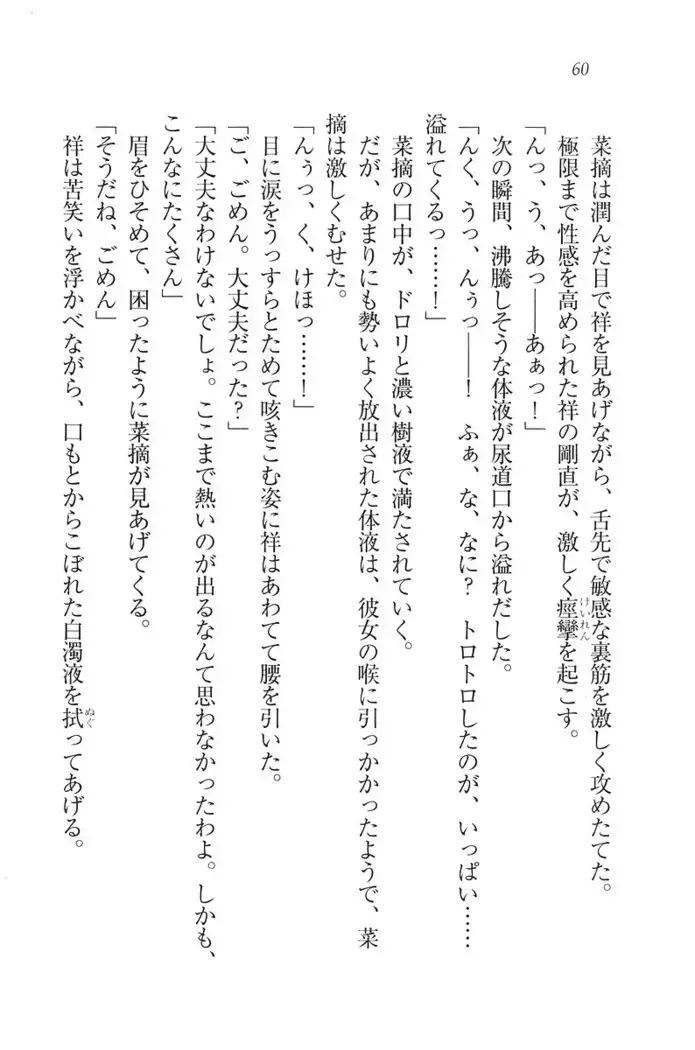 60
菜摘は潤んだ目で祥を見あげながら、舌先で敏感な裏筋を激しく攻めたてた。
極限まで性感を高められた祥の剛直が、激しく痙攣を起こす。
けいれん
「んっ、う、あっ――あぁっ！」
次の瞬間、沸騰しそうな体液が尿道口から溢れだした。
「んく、うっ、んぅっ――！　ふぁ、な、なに？　トロトロしたのが、いっぱい……
溢れてくるっ……！」
菜摘の口中が、ドロリと濃い樹液で満たされていく。
だが、あまりにも勢いよく放出された体液は、彼女の喉に引っかかったようで、菜
摘は激しくむせた。
「んぅっ、く、けほっ……！」
目に涙をうっすらとためて咳きこむ姿に祥はあわてて腰を引いた。
「ご、ごめん。大丈夫だった？」
「大丈夫なわけないでしょ。ここまで熱いのが出るなんて思わなかったわよ。しかも、
こんなにたくさん」
眉をひそめて、困ったように菜摘が見あげてくる。
「そうだね、ごめん」
祥は苦笑いを浮かべながら、口もとからこぼれた白濁液を拭ってあげる。
ぬぐ